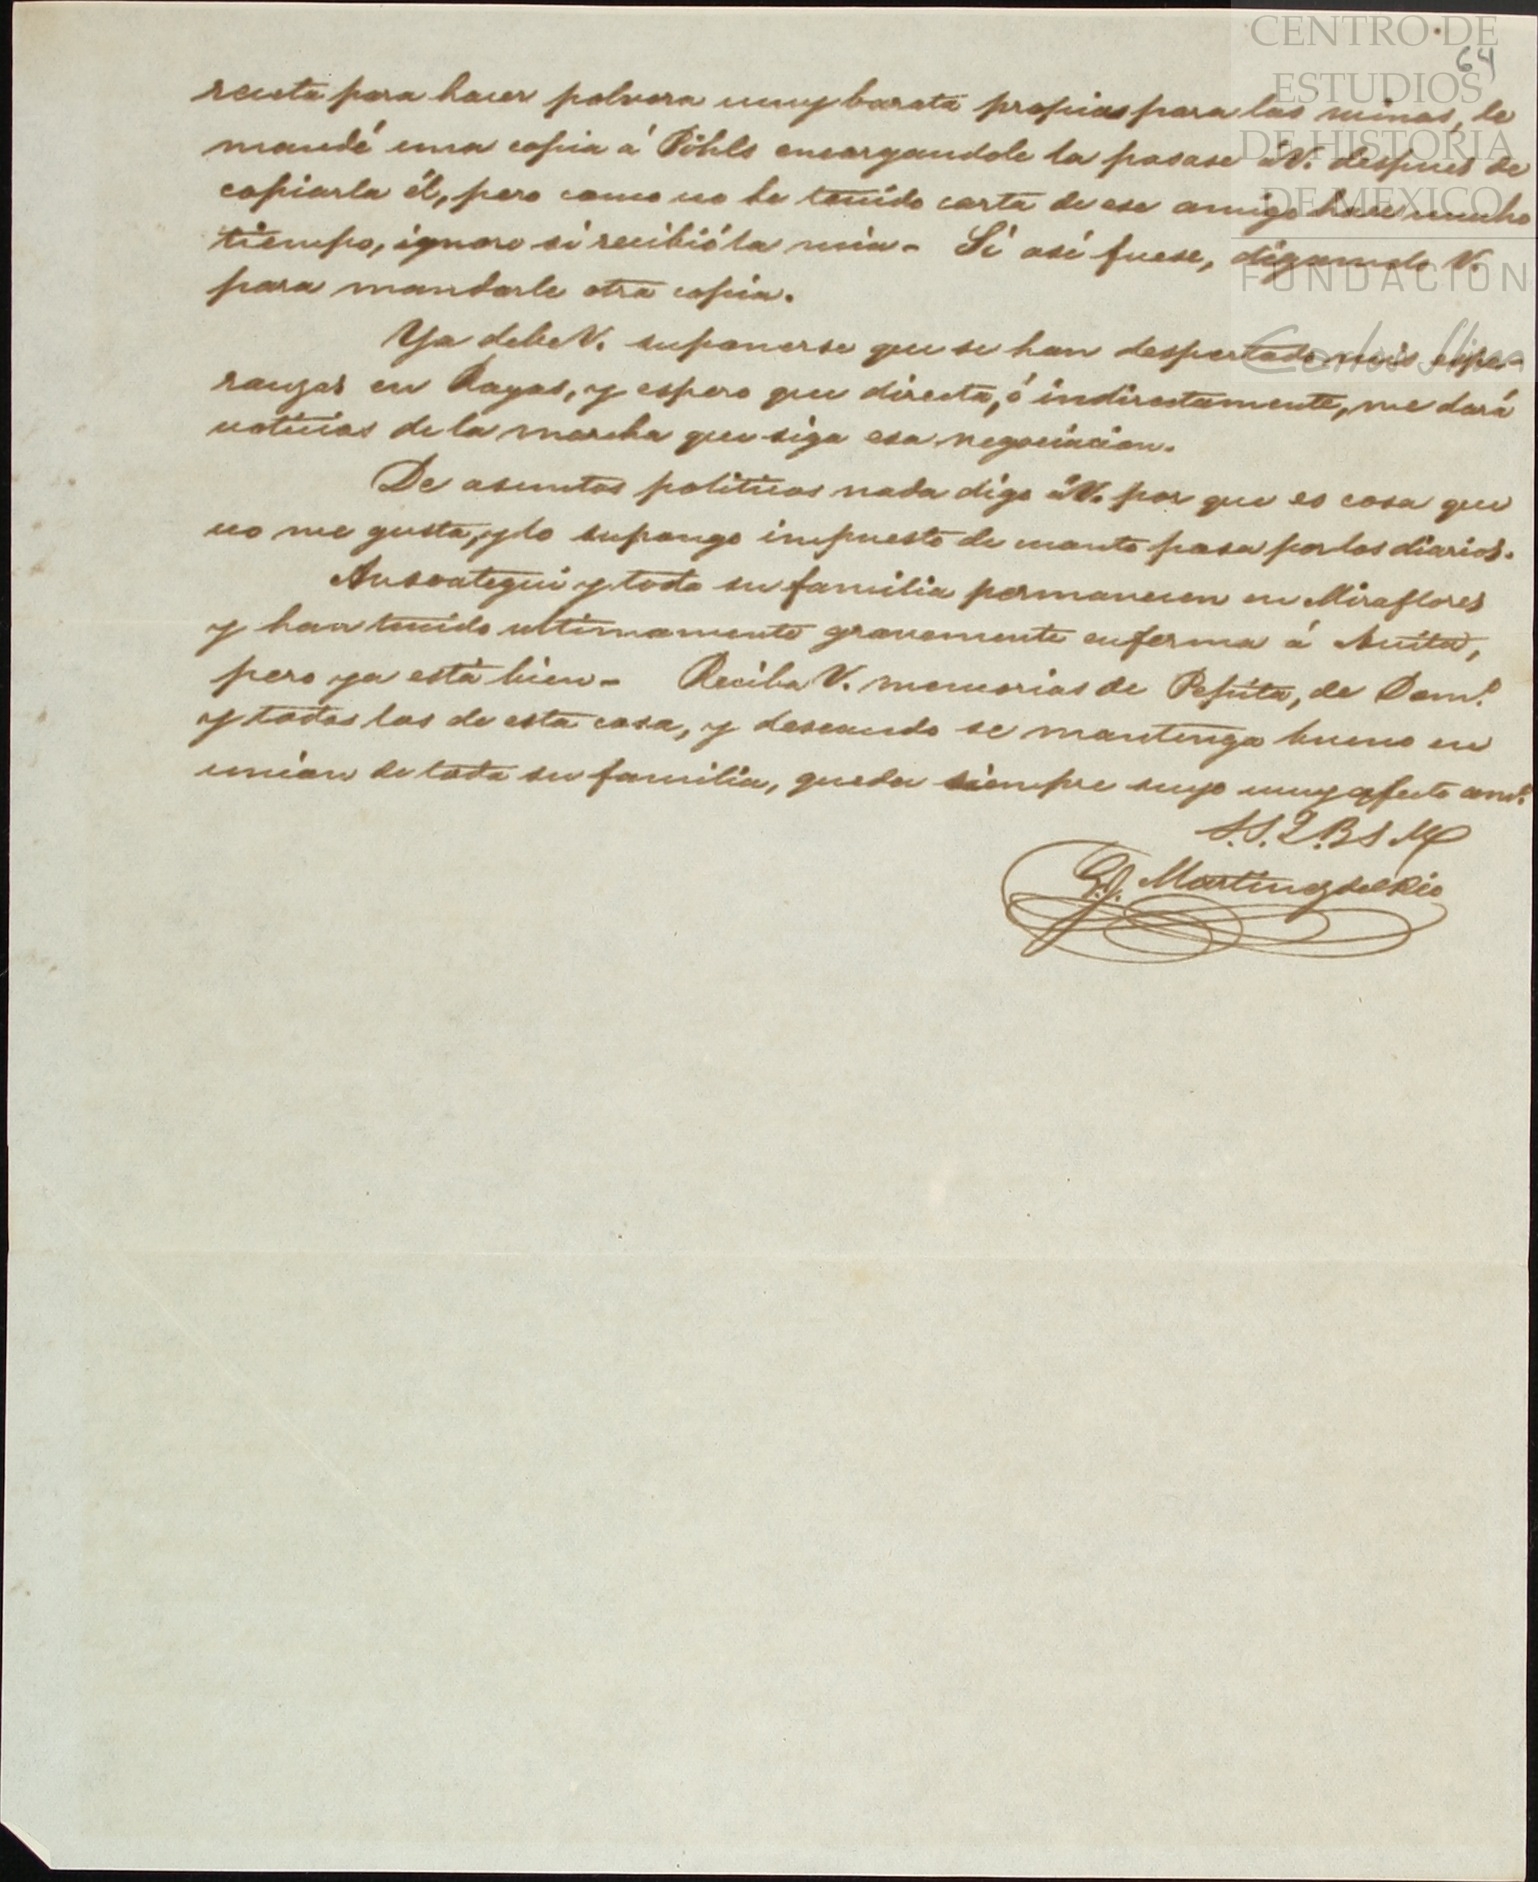 CENTRO DE
ESTUDIOS
DE HISTORIA
DE MEXICO
FUNDACIÓN
Carlos Slim
64
receta para hacer polvora muy barata propias para las minas, le
mandé una copia á Pöhls encargandole la pasase á V. despues de
copiarla él, pero como no he tenido carta de ese amigo hace mucho
tiempo, ignoro si recibió la mia - Si asi fuese, digamelo V.
para mandarle otra copia.
Ya debe V. suponerse que se han despertado mis espe-
ranzas en Rayas, y espero que directa, ó indirectamente, me dará
noticias de la marcha que siga esa negociacion.
De asuntos politicos nada digo á V. por que es cosa que
no me gusta, y lo supongo impuesto de cuanto pasa por los diarios.
Ansoategui y toda su familia permanecen en Miraflores
y han tenido ultimamente gravemente enferma á Anita,
pero ya está bien - Reciba V. memorias de Pepita, de Dom.º
y todos los de esta casa, y deseando se mantenga bueno en
union de toda su familia, queda siempre suyo muy afecto am.º
S.S.Q.B S M
Martinez del Rio